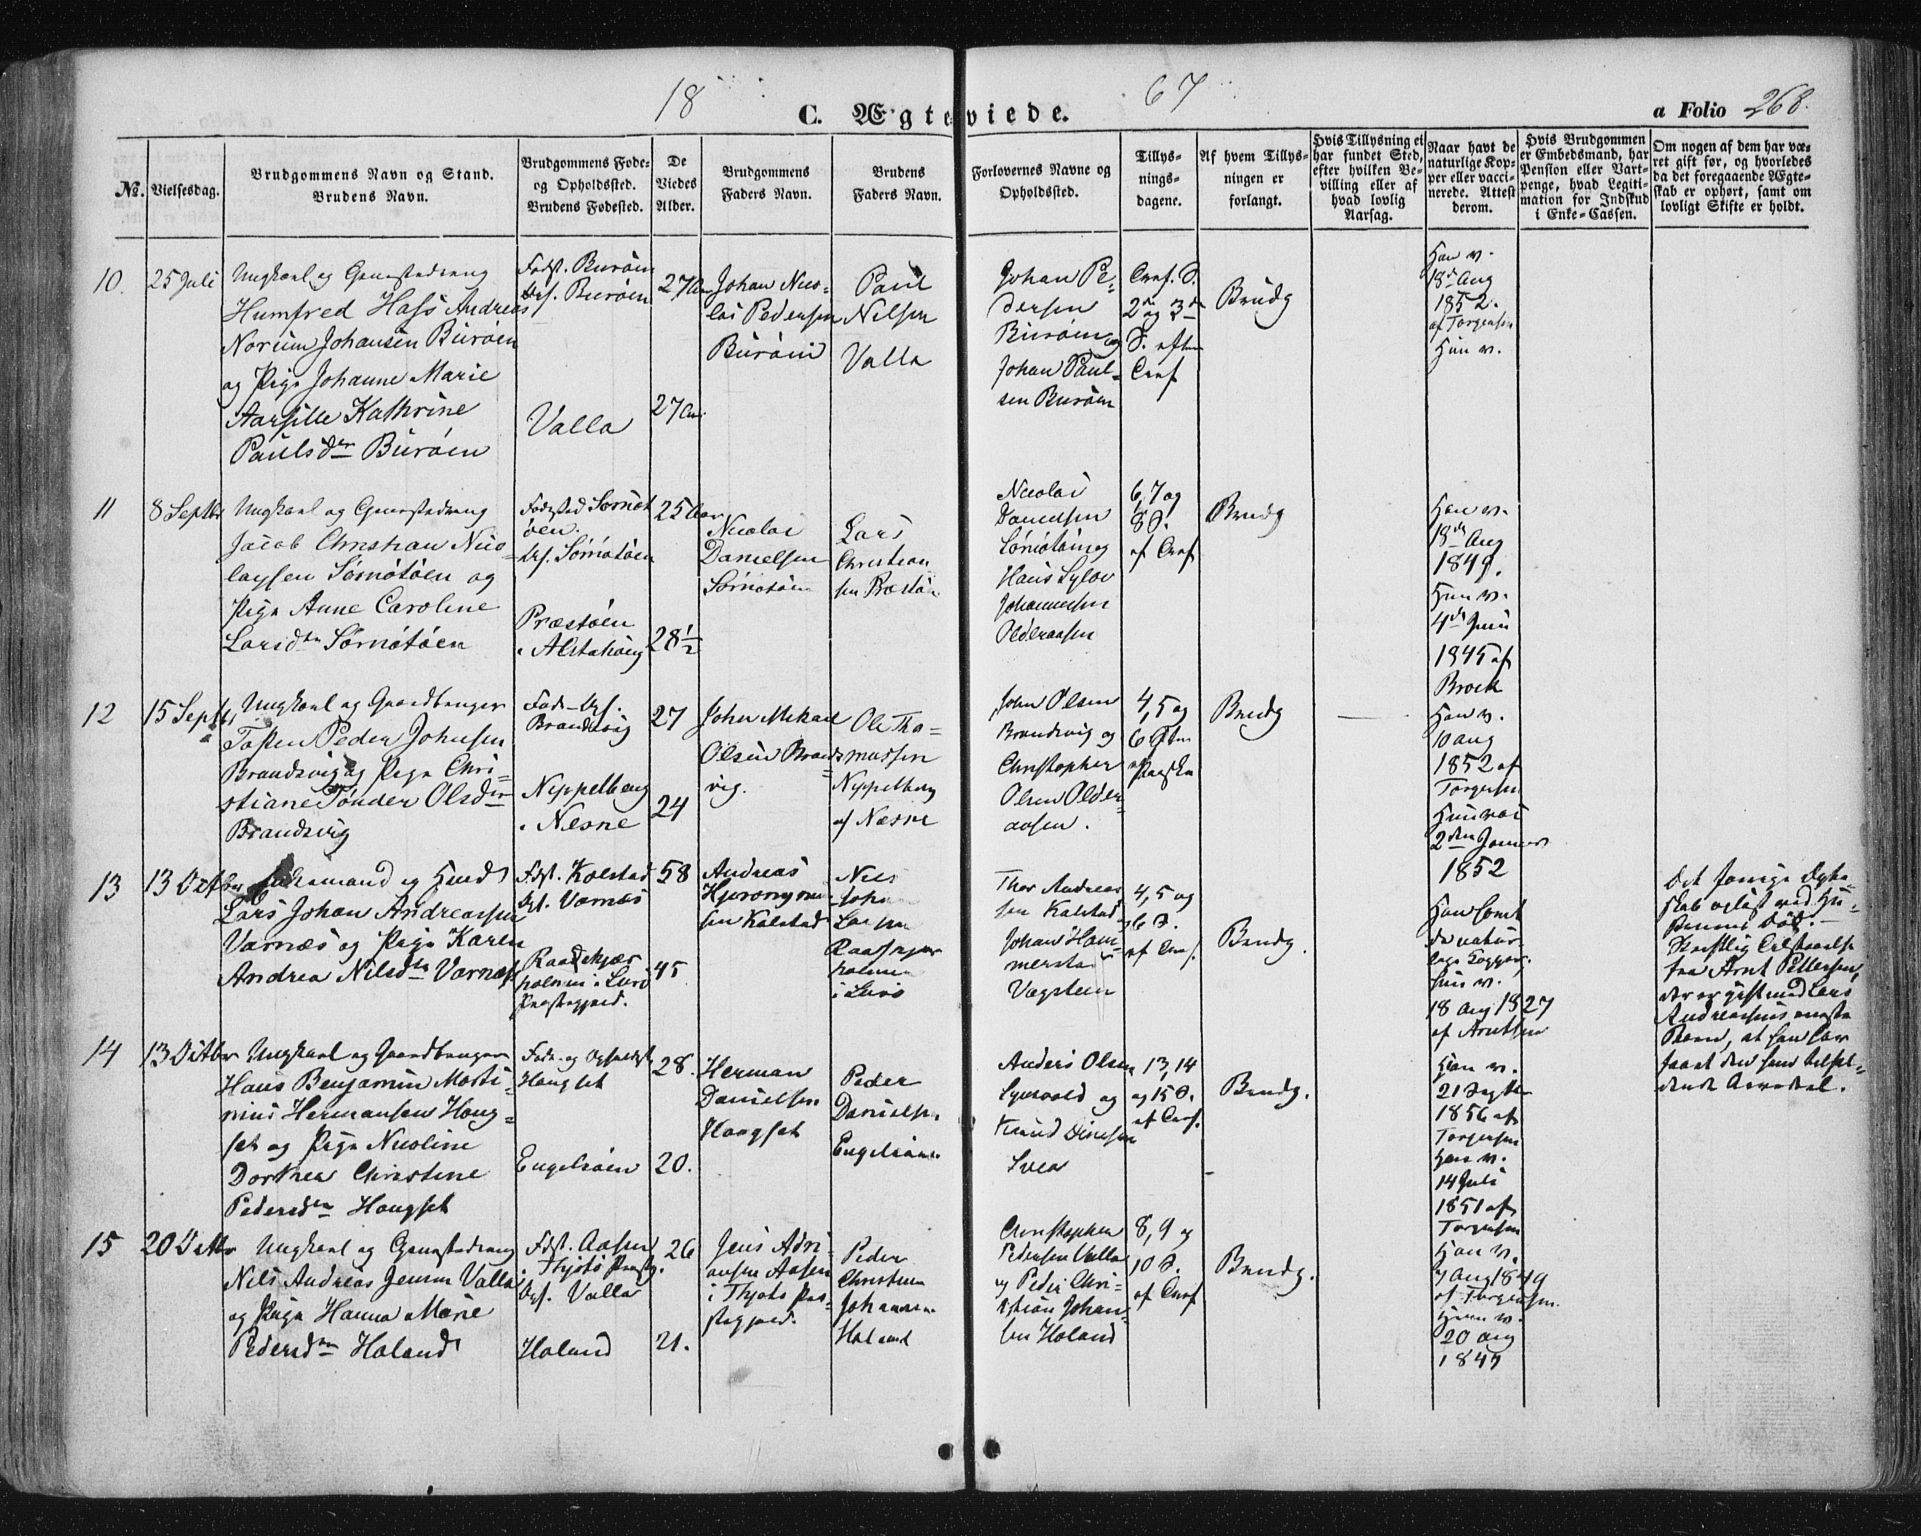 18 67
C. Ægteviede.
a Folio 268.
No.
Vielsesdag.
Brudgommens Navn og Stand.
Brudens Navn.
Brudgommens Føde-
og Opholdssted.
Brudens Fødested.
De
Viedes
Alder.
Brudgommens
Faders Navn.
Brudens
Faders Navn.
Forlovernes Navne og
Opholdssted.
Tillys-
nings-
dagene.
Af hvem Tillys-
ningen er
forlangt.
Hvis Tillysning ei
har fundet Sted,
efter hvilken Be-
villing eller af
hvad lovlig
Aarsag.
Naar havt de
naturlige Kop-
per eller vacci-
nerede. Attest
derom.
Hvis Brudgommen
er Embedsmand, har
Pension eller Vart-
penge, hvad Legiti-
mation for Indskud
i Enke-Cassen.
Om nogen af dem har væ-
ret gift før, og hvorledes
da det foregaaende Ægte-
skab er ophørt, samt om
lovligt Skifte er holdt.
10.
25 Juli
Ungkarl og
Humfred Hass Andreas
Norum Johansen Burøen
og Pige Johanne Marie
Aarsille Kathrine
Paulsdr Burøen
Fødst. Burøen
Burøen
Valla
27 Aar
27 Aar
Johan Nico-
lai Pedersen
Burøen
Paul
Nilsen
Valla
Johan Pe-
dersen
Burøen og
Johan Paul-
sen Burøen
2 og 3
S. efter
Brudg
Han v.
18d Aug
1852.
af Torgersen
Hun v.
11
8 Septbr
Ungkarl og
Jacob Christian Nico-
laysen Sørnøtøen og
Pige Anne Caroline
Larsdtr Sørnøtøen
Fødested Sørnøt
øen.
Sørnøtøen
Præstøen
i Alstahoug
25 Aar
28 1/2
Nicolai
Danielsen
Sørnøtøen
Lars
Christian
sen Præstøen
Nicolai
Danielsen
Sørnøtøen og
Hans
Johannesen
Olderaasen
6, 7 og
8 S.
Brudg
Han v.
18de Aug
Hun v.
4de Juni
1845 af
Brock
12
15 Septbr
Ungkarl og Gaardbruger
Tosten Peder Johnsen
Brandsvig og Pige Chri-
stiane Tønder Olsdtr
Brandsvig
Brandsvig
Neppelberg
i Nesne
27
24
John Mikael
Olsen Brands
vig.
Ole Tho-
massen
Neppelberg
af Næsne
John Olsen
Brandsvig og
Christopher
Olsen Older-
aasen.
4, 5 og
6 S.
Brudg
Han v.
10 aug
1852 af
Torgersen
Hun var
2den Januar
1852
13
13 Octbr
Enkemand og
Lars Johan Andreassen
Varnæs og Pige Karen
Andrea Nilsdtr Varnæs
Fdst. Kolstad
Varnæs
i Lurø
Præstegjeld.
58
45
Andreas
Hjeronymu
sen Kolstad
Nils
Larsen
i Lurø
Thor Andreas
sen Kolstad og
Johan Ham-
merstad
Vægsteen
4, 5 og
6 S.
Brudg.
Hun v.
18 Aug 1827
af Arntsen
fra Arnt Pettersen,
der er gift med Lars
Andreassens eneste
Barn, at han har
faaet den ham tilfal-
dende Arvedeel.
14
13 Octbr
Ungkarl og Gaardbruger
Hans Benjamin Marti-
nius Hermansen Houg-
set og Pige Nicoline
Dorthea Christine
Pedersdtr Hougset
Hougset
Engelsøen
28.
20.
Herman
Danielsen
Hougset
Peder
Danielsen
Engelsøen
Anders Olsen
og
13, 14
og 15 S.
Brudg.
Han v.
21 Septbr
1856 af
Torgersen
Hun v.
14 Juli
1851 af
Torgersen
15
20 Octbr
Ungkarl og
Nils Andreas Jensen Valla
og Pige Hanna Marie
Pedersdtr Holand
Fdst. Aasen
i Thjøtø Præstg.
Valla
Holand
26
21.
Jens Adri-
ansen Aasen
i Thjøtø Præ-
stegjeld.
Peder
Christian
Johansen
Holand
Christopher
Pedersen Valla
og Peder Chri-
stian Johan-
sen Holand
8, 9 og
10 S.
Brudg.
Han v.
7 Aug 1849
af Torgersen.
Hun v.
20 Aug
1847